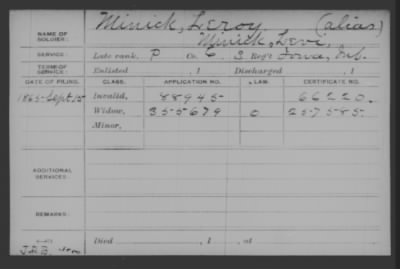 NAME OF SOLDIER: Minick, Leroy (alias)
Minick, Levi,
SERVICE: Late rank, P Co. C, 3 Reg't Iowa, Inf.
TERM OF SERVICE: Enlisted , 1 Discharged , 1
DATE OF FILING. CLASS. APPLICATION NO. LAW. CERTIFICATE NO.
1865-Sept. 15 Invalid, 88945 66220.
Widow, 355679 0 257585.
Minor,
ADDITIONAL SERVICES:
REMARKS:
Died , 1 , at